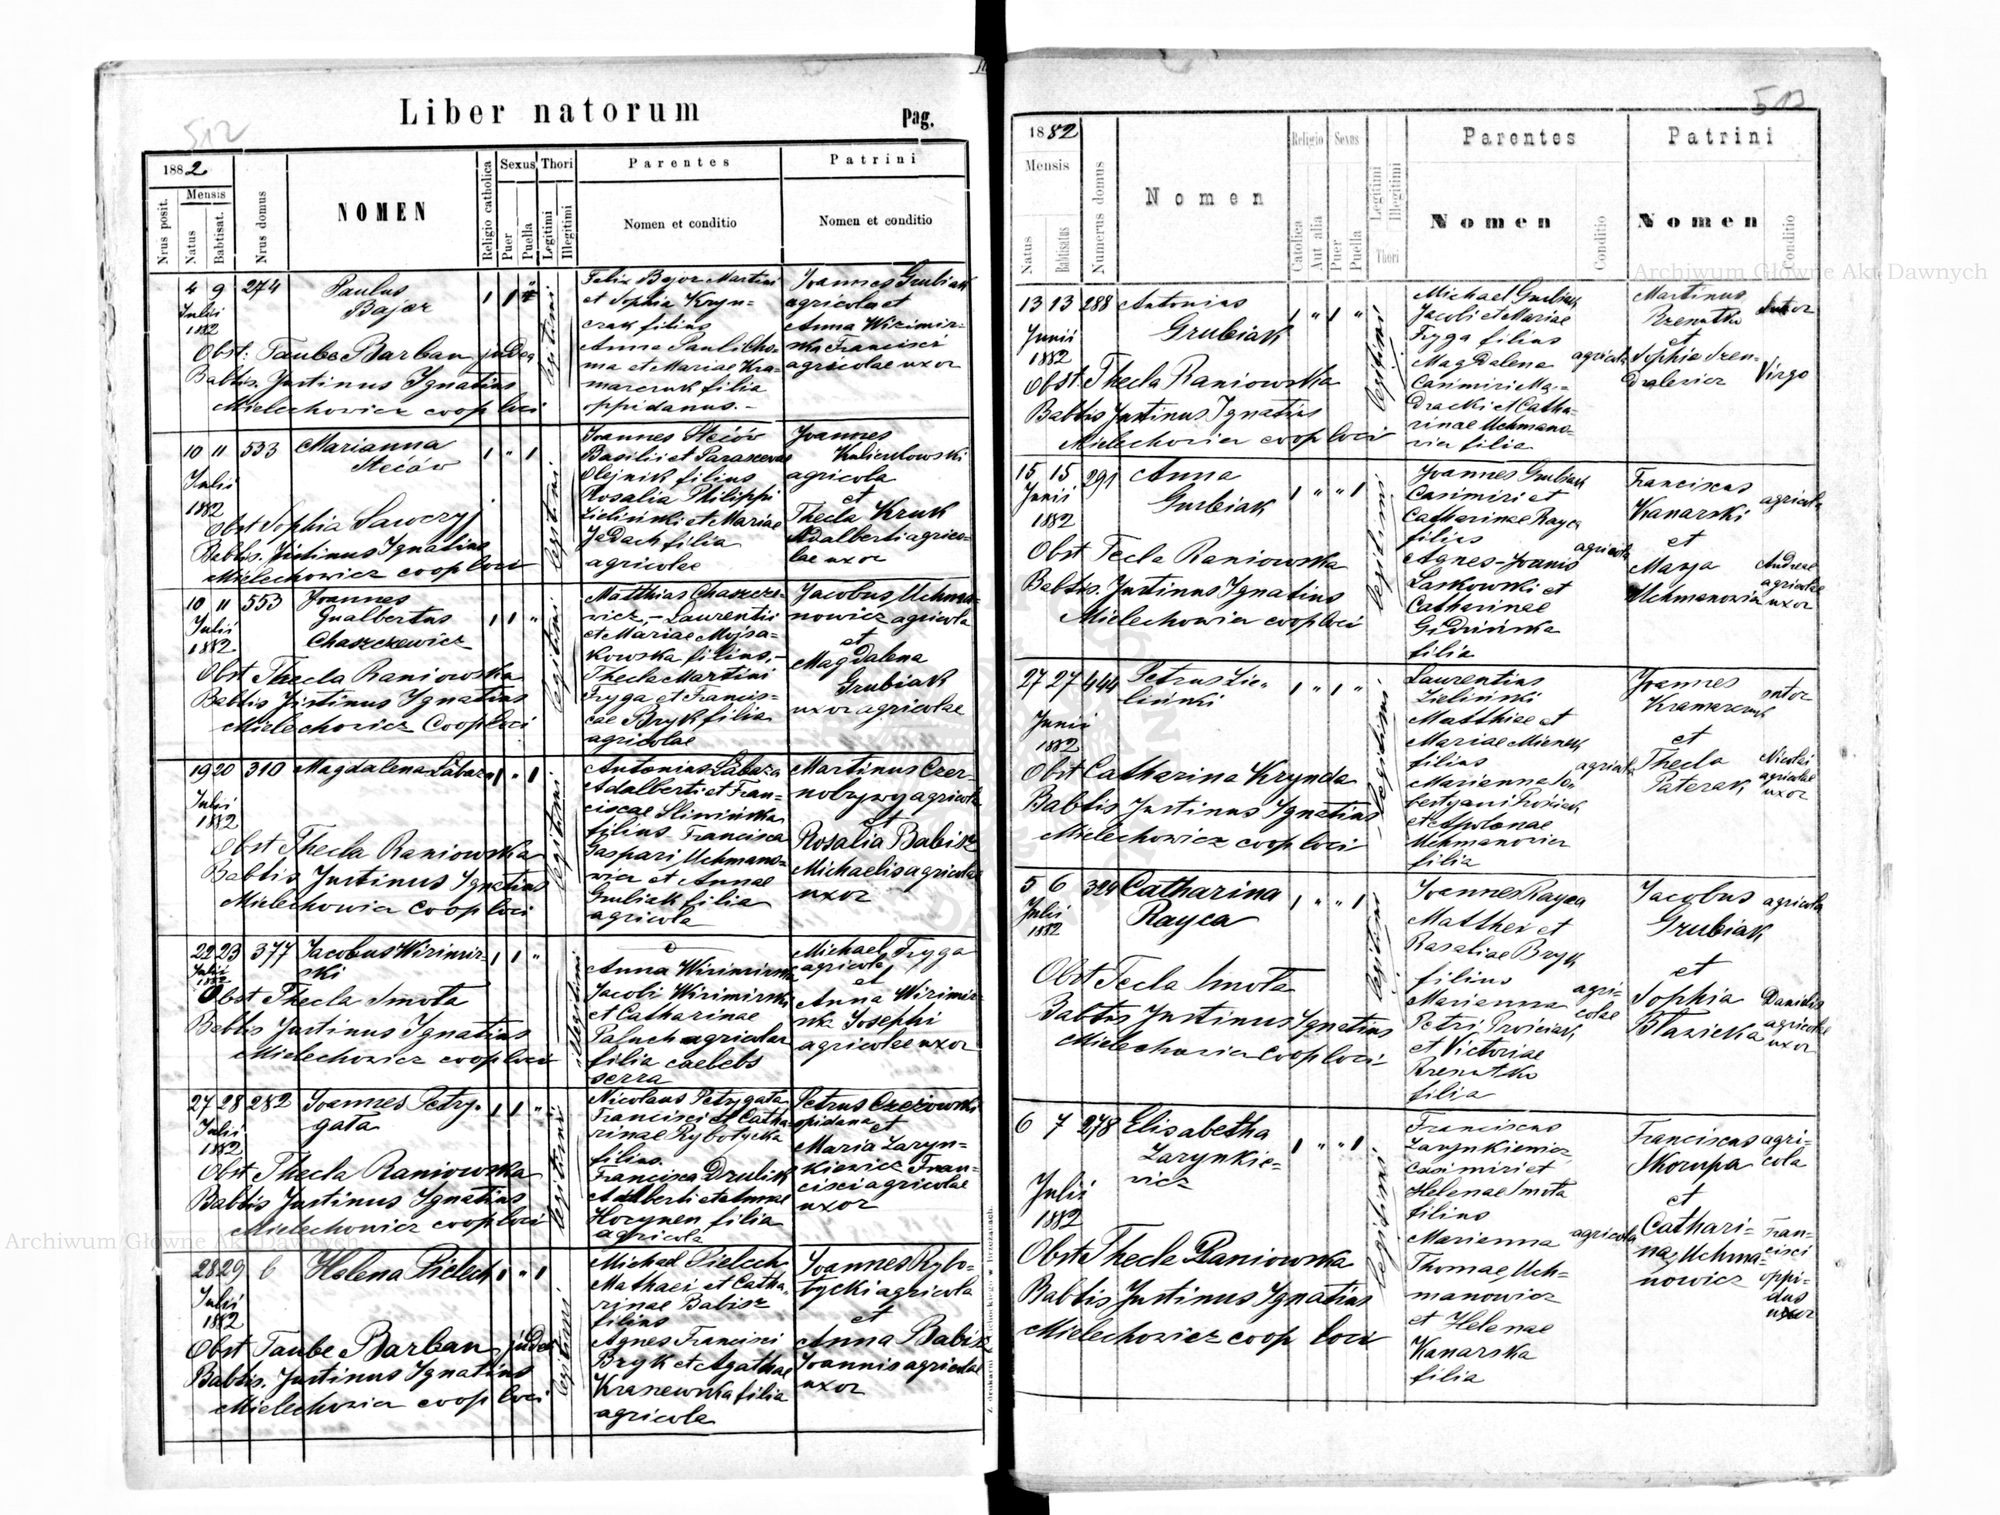 512
Liber natorum
Pag.
1882
Mensis
Nrus posit.
Natus
Babtisat.
Nrus domus
NOMEN
Religio catholica
Sexus
Puer
Puella
Thori
Legitimi
Illegitimi
Parentes
Nomen et conditio
Patrini
Nomen et conditio
4 9 274 Paulus
Bajor
Julii
1882
Obst: Taube Barban judea
Babtis. Justinus Ignatius
Mielechowicz coop loci
legitimi
Felix Bajor Martini
et Sophia Kryn-
czak filius
Anna Pauli Cho-
ma et Mariae Kra-
marczuk filia
oppidanus.-
Joannes Grubiak
agricola et
Anna Wizimir-
ska Francisci
agricolae uxor
10 11 533 Marianna
Stećów
Julii
1882
Obst Sophia Sawczyj
Babtis. Justinus Ignatius
Mielechowicz coop loci
legitimi
Joannes Stećów
Basilii et Parascevae
Olejnik filius
Rosalia Philippi
Zieliński et Mariae
Jadach filia
agricolae
Joannes
Kulczkowski
agricola
et
Thecla Kruk
Adalberti agrico-
lae uxor
10 11 553 Joannes
Gualbertus
Chaszczewicz
Julii
1882
Obst Thecla Raniowska
Babtis Justinus Ignatius
Mielechowicz Coop loci
legitimi
Matthias Chaszcze-
wicz,- Laurentii
et Mariae Mojsa-
kowska filius,-
Thecla Martini
Fryga et Francis-
cae Bryk filia
agricolae
Jacobus Uchma-
nowicz agricola
et
Magdalena
Grubiak
uxor agricolae
19 20 310 Magdalena Łabaza
Julii
1882
Obst Thecla Raniowska
Babtis Justinus Ignatius
Mielechowicz Coop loci
legitimi
Antonius Łabaza
Adalberti et Fran-
ciscae Śliwińska
filius Francisca
Gaspari Uchmano-
wicz et Annae
Grubiak filia
agricola
Martinus Czer-
nobrywy agricola
et
Rosalia Babisz
Michaelis agricolae
uxor
22 23 377 Jacobus Wizimir-
ski
Julii
1882
Obst Thecla Smota
Babtis Justinus Ignatius
Mielechowicz coop loci
illegitimi
Anna Wizimirska
Jacobi Wizimirski
et Catharinae
Paluch agricolar
filia caelebs
serva
Michael Fryga
agricola
et
Anna Wizimir-
ska Josephi
agricolae uxor
27 28 282 Joannes Petry-
gata
Julii
1882
Obst Thecla Raniowska
Babtis Justinus Ignatius
Mielechowicz coop loci
legitimi
Nicolaus Petrygata
Francisci et Catha-
rinae Rybotycka
filius.
Francisca Drulik
Adalberti et Annae
Horynen filia
agricola
Petrus Czeżowski
opidanus et
Maria Laryn-
kiewicz Fran-
cisci agricolae
uxor
28 29 6 Helena Pielech
Julii
1882
Obst Taube Barban, judea
Babtis. Justinus Ignatius
Mielechowicz coop loci
legitimi
Michael Pielech
Mathaei et Catha-
rinae Babisz
filius
Agnes Francisci
Bryk et Agathae
Kranewska filia
agricola
Joannes Rybo-
tycki agricola
et
Anna Babisz
Joannis agricolae
uxor
513
1882
Mensis
Natus
Babtisatus
Numerus domus
Nomen
Religio
Catholica
Aut alia
Sexus
Puer
Puella
Legitimi
Illegitimi
Thori
Parentes
Nomen
Conditio
Patrini
Nomen
Conditio
13 13 288 Antonius
Grubiak
Junii
1882
Obst. Thecla Raniowska
Babtis Justinus Ignatius
Mielechowicz coop loci
legitimi
Michael Grubiak
Jacobi et Mariae
Fryga filius
Magdalena agricola
Casimiri Ma-
dracki et Catha-
rinae Uchmano-
wicz filia
Martinus
Brenutka sutor
et
Sophia Fren-
dzalewicz Virgo
15 15 291 Anna
Grubiak
Junii
1882
Obst Tecla Raniowska
Babtis. Justinus Ignatius
Mielechowicz coop loci
legitimi
Joannes Grubiak
Casimiri et
Catharinae Rayca
filius agricola
Agnes Joanis
Laskowski et
Catharinae
Gidzińska
filia
Franciscus agricola
Kanarski
et
Marya Andreae
Uchmanowicz agricolae
uxor
27 27 444 Petrus Zie-
liński
Junii
1882
Obst Catharina Krynda
Babtis Justinus Ignatius
Mielechowicz coop loci
legitimi
Laurentius
Zieliński
Matthiae et
Mariae Mienek
filius agricola
Marianna Se-
bestyani Prośniak
et Apolonae
Uchmanowicz
filia
Joannes sutor
Kramarczuk
et
Thecla Nicolai
Paterak agricolae
uxor
5 6 324 Catharina
Rayca
Julii
1882
Obst Tecla Smota
Babtis Justinus Ignatius
Mielechowicz Coop loci
legitimi
Joannes Rayca
Matthei et
Rosaliae Bryk
filius agri-
Marianna colae
Petri Prościak
et Victoriae
Brenutka
filia
Jacobus agricola
Grubiak
et
Sophia Danielis
Błazicka agricolae
uxor
6 7 278 Elisabetha
Larynkie-
wicz
Julii
1882
Obst Thecla Raniowska
Babtis Justinus Ignatius
Mielechowicz coop loci
legitimi
Franciscus
Larynkiewicz
Casimiri et
Helenae Smota
filius
Marianna agricola
Thomae Uch-
manowicz
et Helenae
Kanarska
filia
Franciscus agri-
Skorupa cola
et
Cathari- Fran-
na Uchma- cisci
nowicz oppi-
dus
uxor
Archiwum Główne Akt Dawnych
Archiwum Główne Akt Dawnych